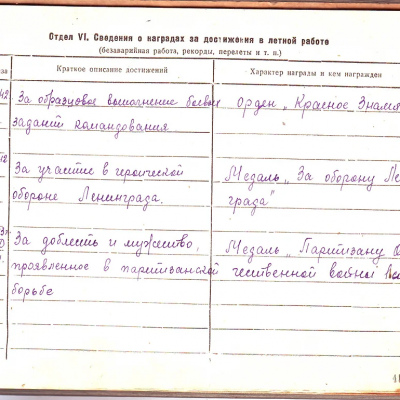 Отдел VI. Сведения о наградах за достижения в летной работе
(безаварийная работа, рекорды, перелеты и т. п.)
Краткое описание достижений Характер награды и кем награжден
За образцовое выполнение боевых орден „Красное Знамя
заданий командования
За участие в героической Медаль „За оборону Ле
обороне Ленинграда. града"
За доблесть и мужество, Медаль „Партизану О
проявленное в партизанской чественной войны
борьбе